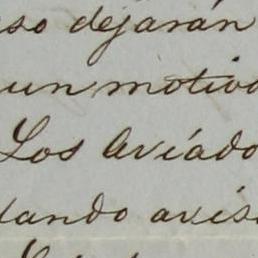 eso dejarán
un motivo
Los Aviado
dando avis